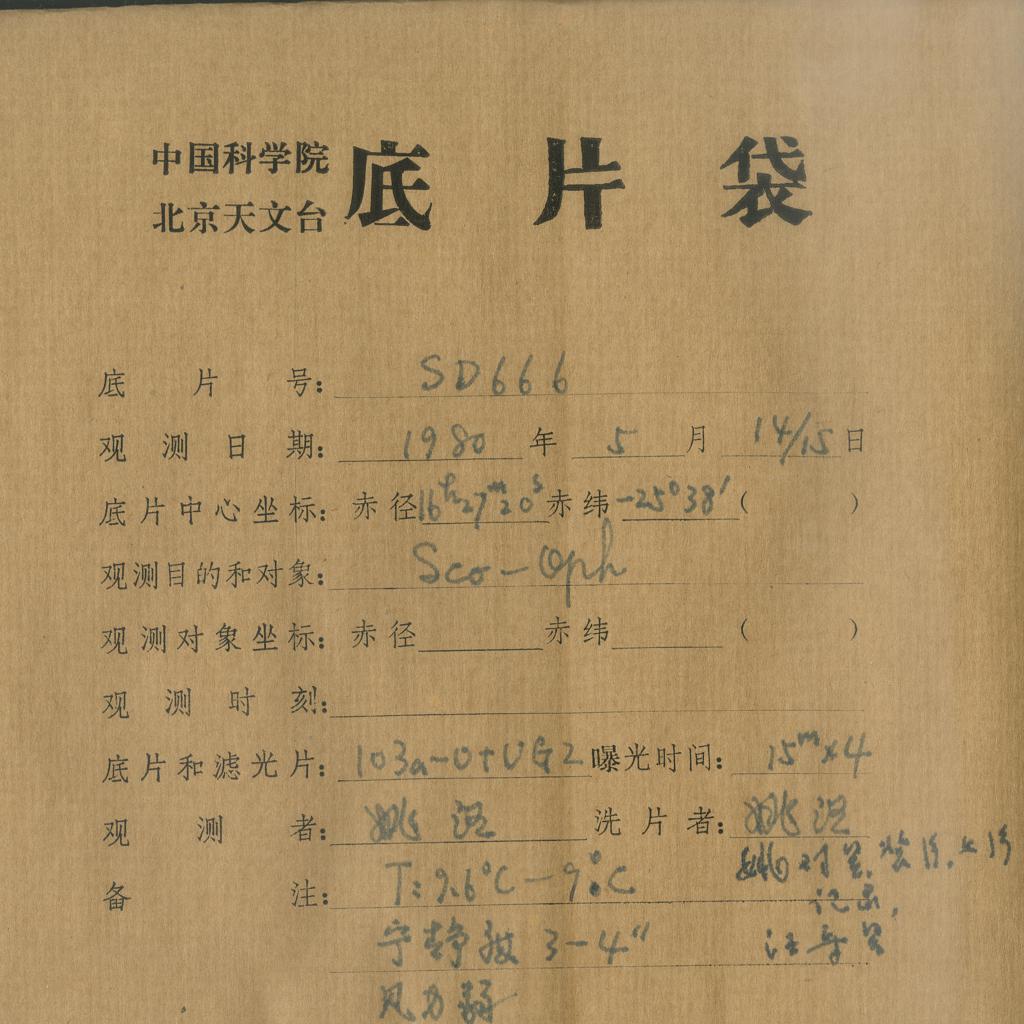 中国科学院
北京天文台
底片袋
底片号: SD666
观测日期: 1980 年 5 月 14/15 日
底片中心坐标: 赤径 16h27m20s 赤纬 -25°38′ ( )
观测目的和对象: Sco-Oph
观测对象坐标: 赤径 赤纬 ( )
观测时刻:
底片和滤光片: 103a-O+UG2 曝光时间: 15m×4
观测者: 姚 洗片者: 姚
备注: T: 9.6°C-9.°C
记录,
宁静度 3-4″
风力